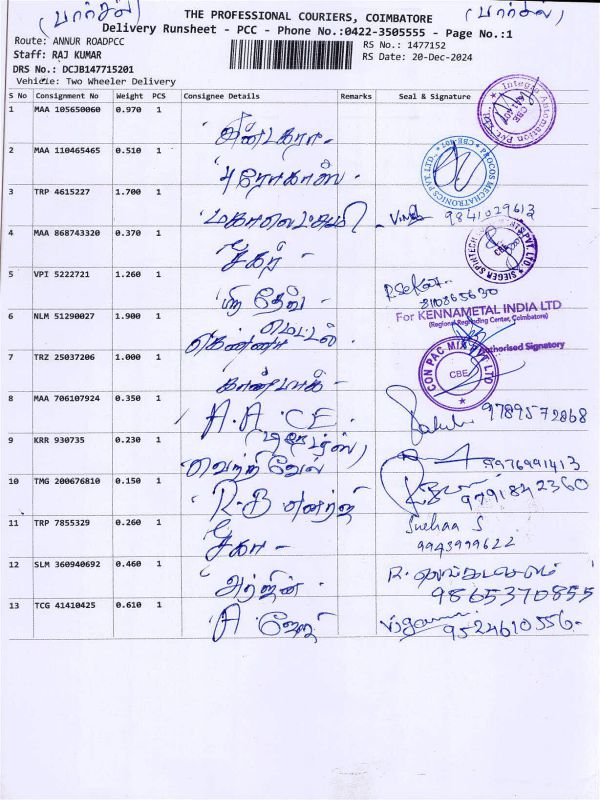 (பார்சல்) THE PROFESSIONAL COURIERS, COIMBATORE (பார்சல்)
Delivery Runsheet - PCC - Phone No.:0422-3505555 - Page No.:1
Route: ANNUR ROADPCC RS No.: 1477152
Staff: RAJ KUMAR RS Date: 20-Dec-2024
DRS No.: DCJB147715201
Vehicle: Two Wheeler Delivery
S No Consignment No Weight PCS Consignee Details Remarks Seal & Signature
1 MAA 105650060 0.970 1
Integra Automation Pvt. Ltd. CBE
2 MAA 110465465 0.510 1 புரோகாஸ்
PROCOS MECHATRONICS PVT. LTD.
3 TRP 4615227 1.700 1 மகாலெட்சுமி - 9841029613
4 MAA 868743320 0.370 1 சீகர் -
SIEGER SPINTECH PVT. LTD CBE
5 VPI 5222721 1.260 1 R Sekar
6 NLM 51290027 1.900 1 கென்னா மெட்டல்
For KENNAMETAL INDIA LTD
(Regional Regrinding Center, Coimbatore)
Authorised Signatory
7 TRZ 25037206 1.000 1 கான்பாக் -
CON PAC MIX PVT LTD CBE
8 MAA 706107924 0.350 1 A.A.CE 9789572868
9 KRR 930735 0.230 1 வெற்றிவேல் 9976991413
10 TMG 200676810 0.150 1 R.B எனர்ஜி 9791842360
11 TRP 7855329 0.260 1 சீகா - S
9943999622
12 SLM 360940692 0.460 1 R.
9865370855
13 TCG 41410425 0.610 1 A 9524610556